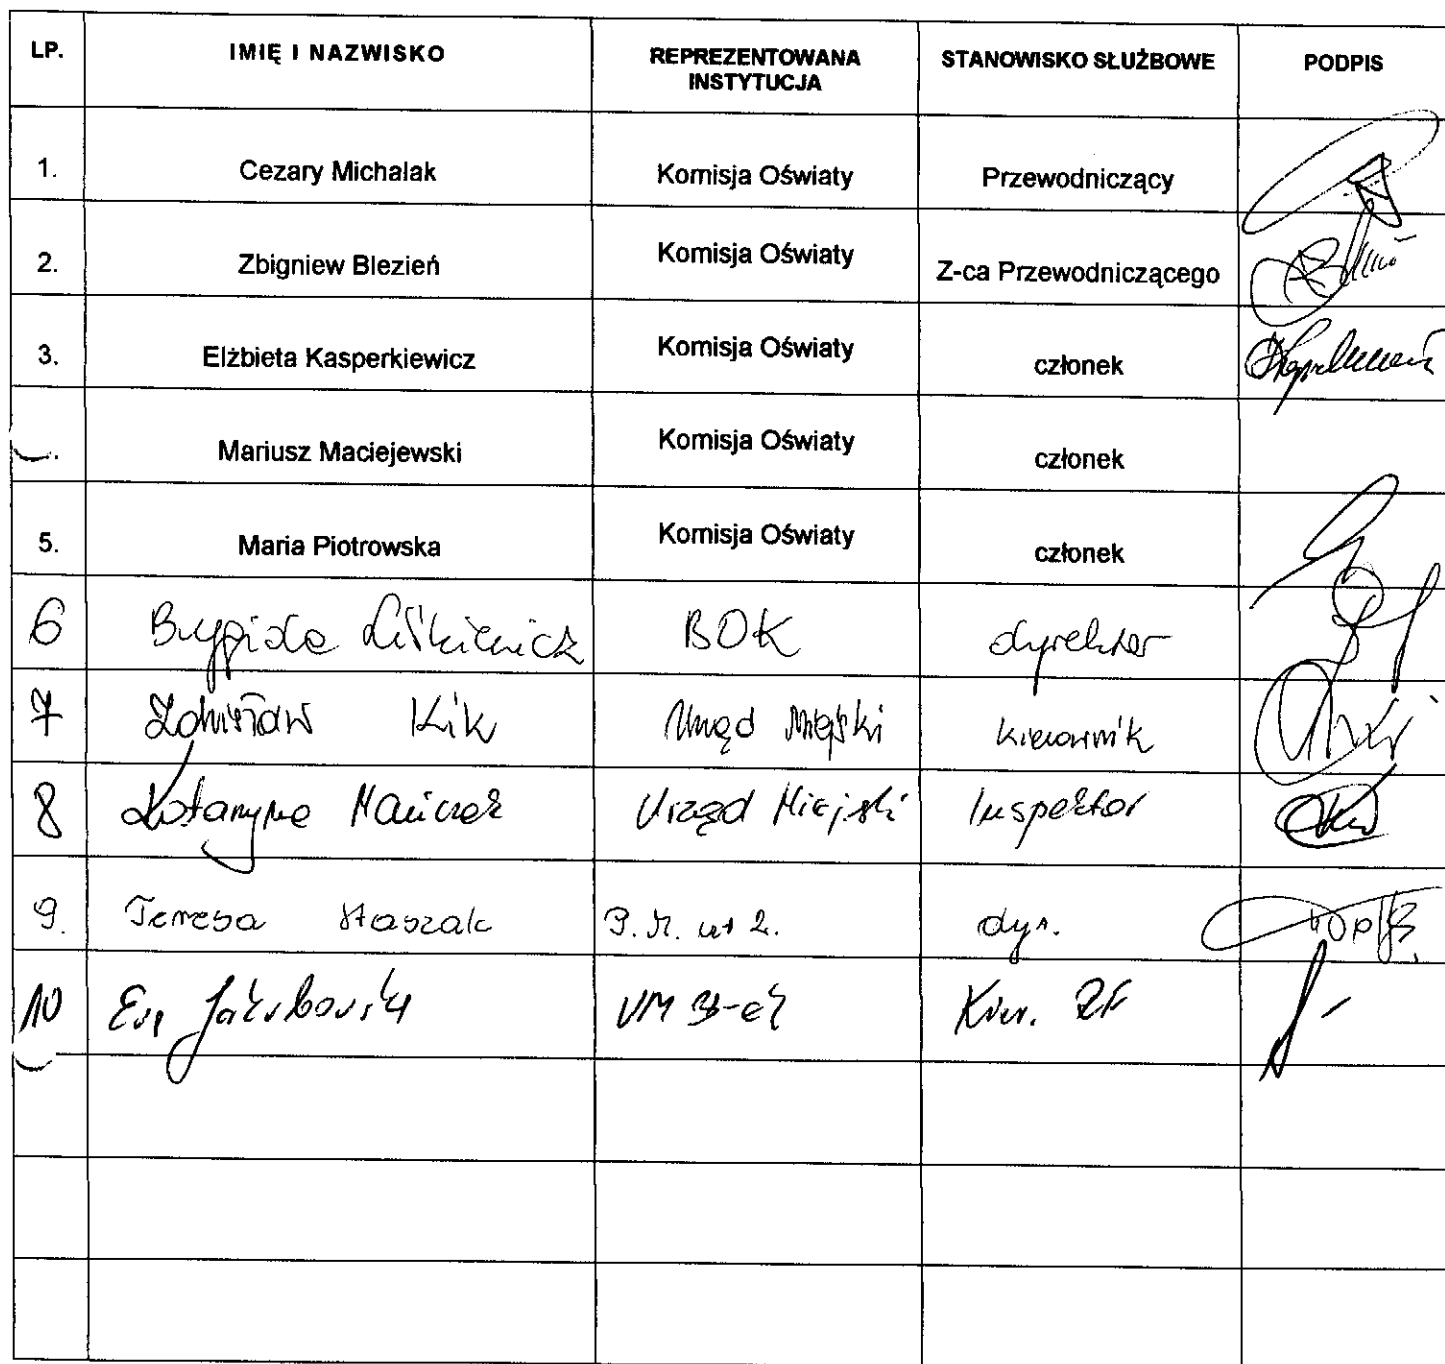 LP. IMIĘ I NAZWISKO REPREZENTOWANA INSTYTUCJA STANOWISKO SŁUŻBOWE PODPIS
1. Cezary Michalak Komisja Oświaty Przewodniczący
2. Zbigniew Blezień Komisja Oświaty Z-ca Przewodniczącego
3. Elżbieta Kasperkiewicz Komisja Oświaty członek
Mariusz Maciejewski Komisja Oświaty członek
5. Maria Piotrowska Komisja Oświaty członek
6 Brygida BOK dyrektor
7 Zdzisław Kik Urząd Miejski kierownik
8 Katarzyna Urząd Miejski Inspektor
9. Teresa Staszak dyr.
10 Ewa Jakubowska UM Kier.